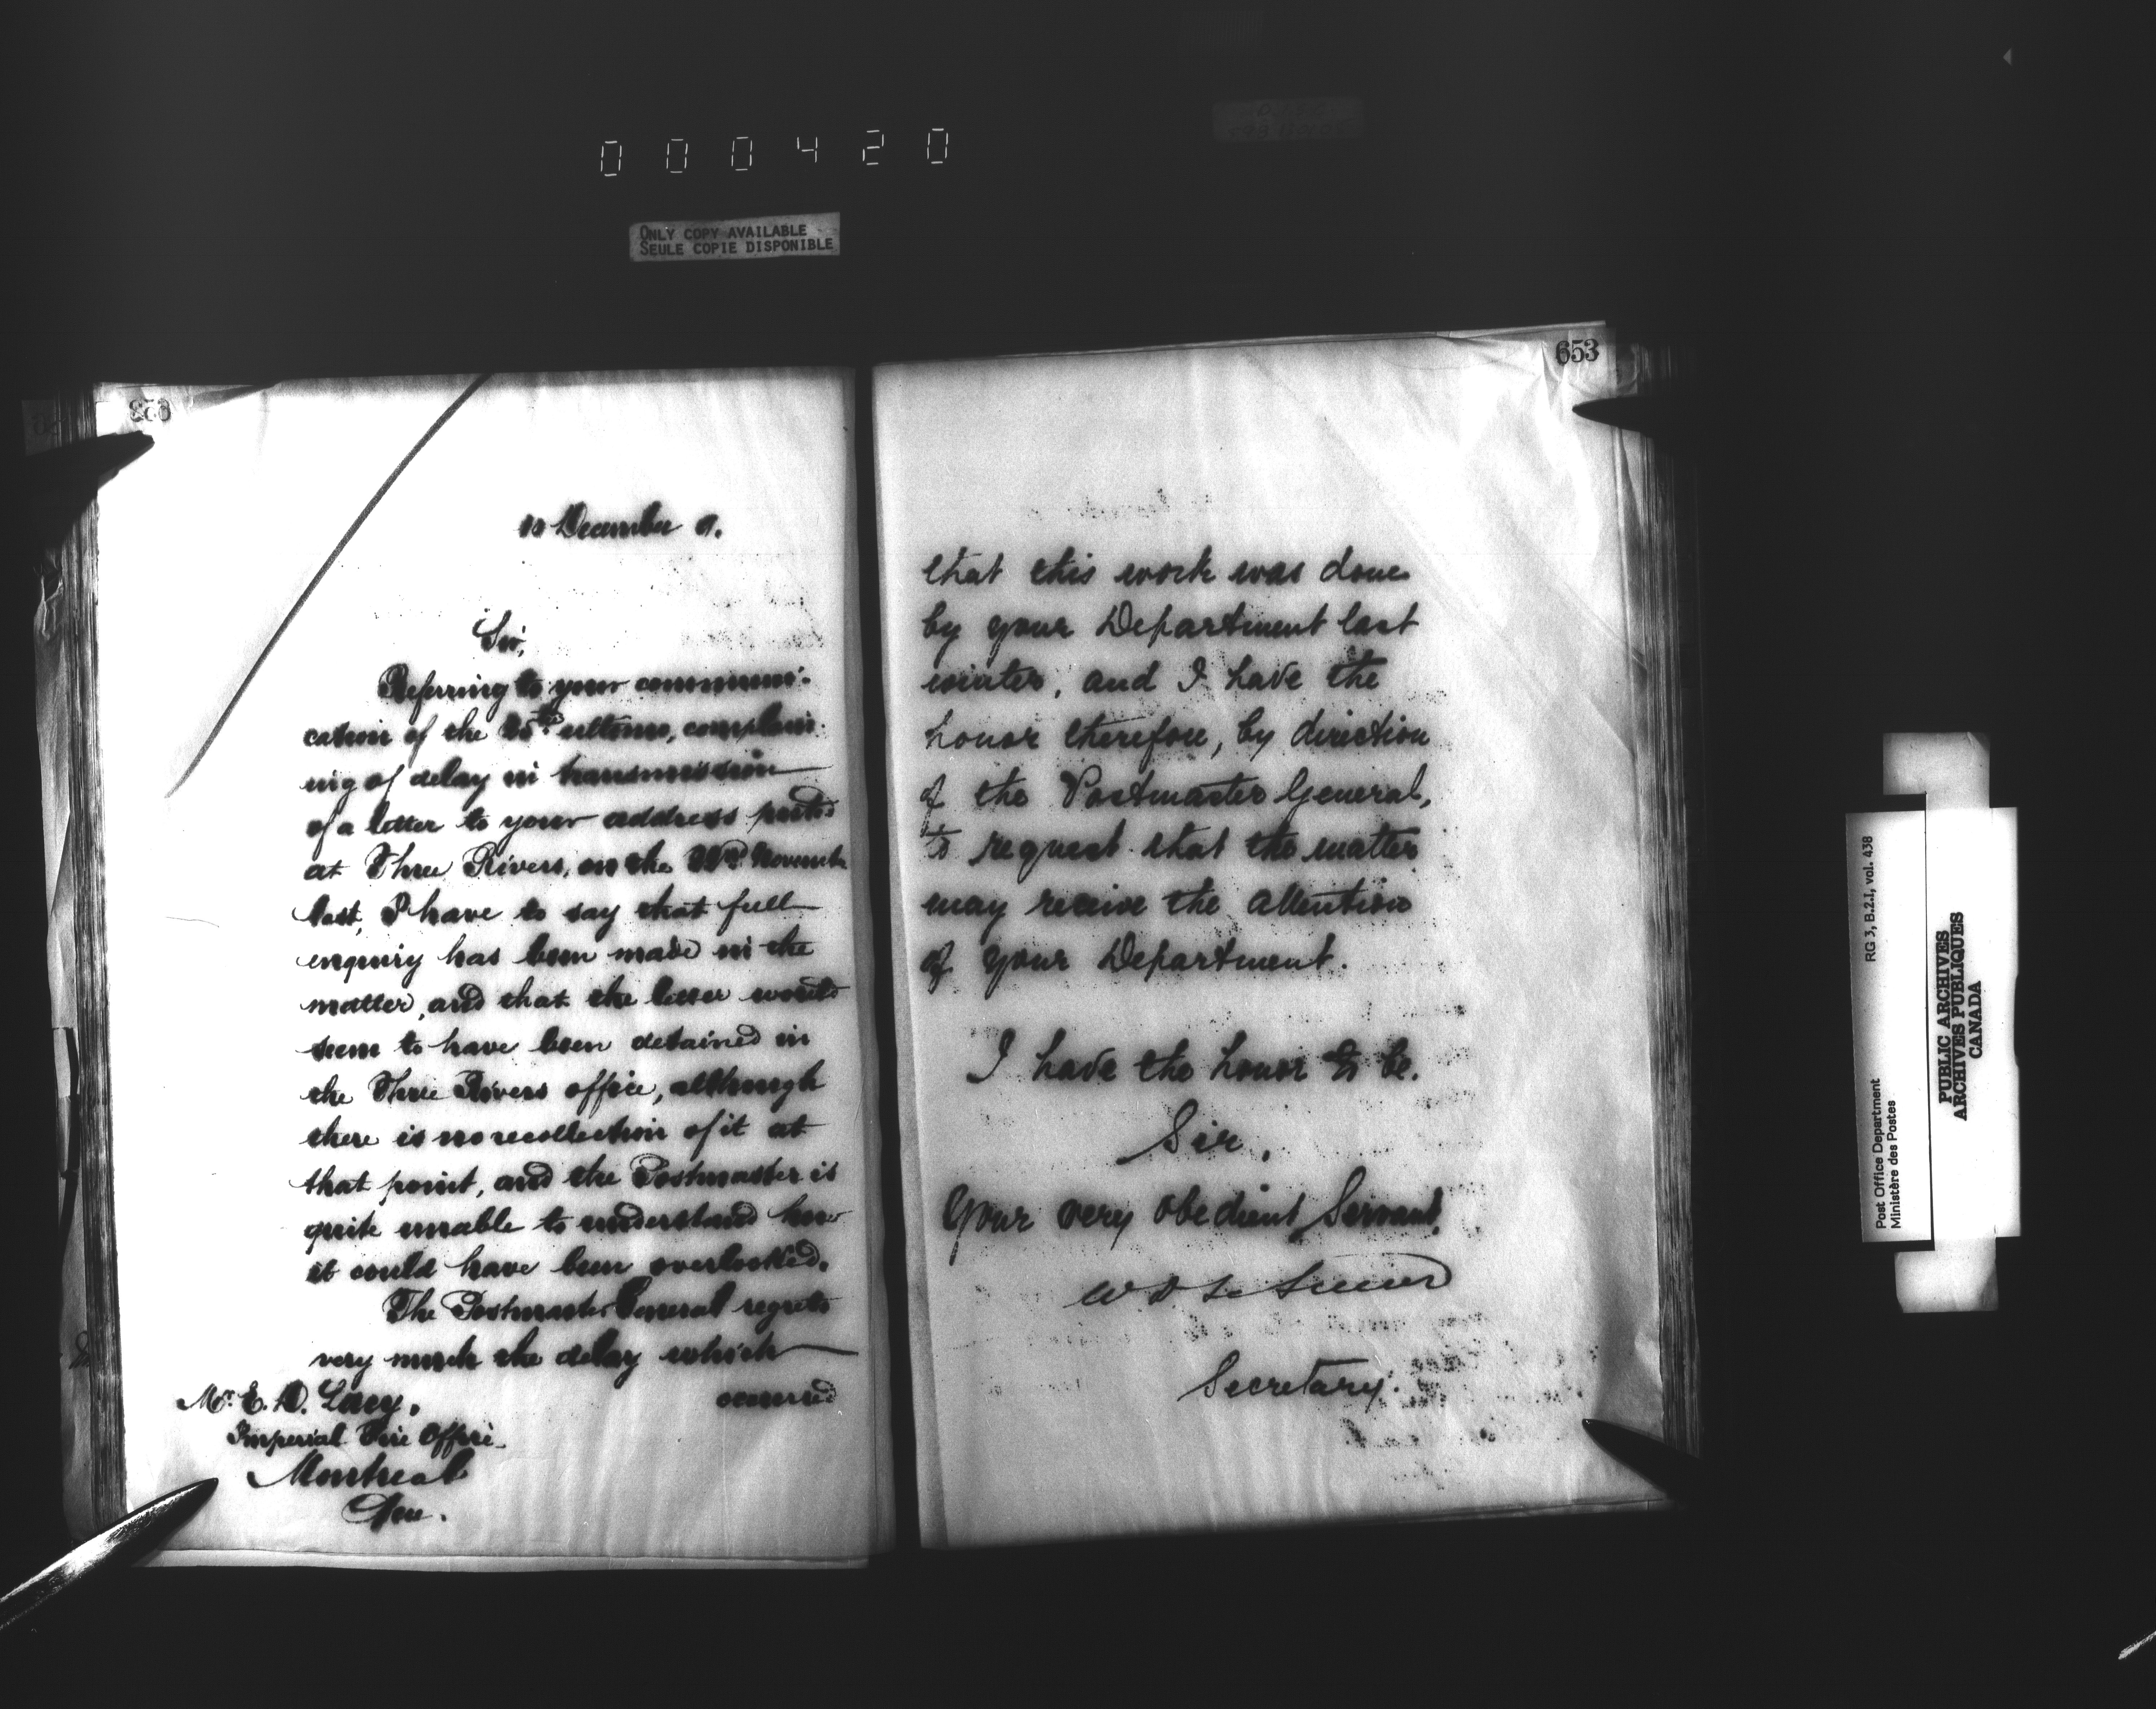 000420
ONLY COPY AVAILABLE
SEULE COPIE DISPONIBLE
10 December
Sir,
Referring to your communi-
cation of the ultimo, complain-
ing of delay in transmission
of a letter to your address posted
at Three Rivers, on the November
last, I have to say that full
enquiry has been made in the
matter, and that the letter would
seem to have been detained in
the Three Rivers office, although
there is no recollection of it at
that point, and the Postmaster is
quite unable to understand how
it could have been overlooked.
The Postmaster General regrets
very much the delay which
occurred
Mr. E. D. Lacy,
Imperial Fire Office
Montreal
Que.
653
that this work was done
by your Department last
winter, and I have the
honor therefore, by direction
of the Postmaster General,
to request that the matter
may receive the attention
of your Department.
I have the honor to be.
Sir,
Your very obedient Servant,
W D LeSueur
Secretary.
Post Office Department
Ministère des Postes
RG 3, B.2.I, vol. 438
PUBLIC ARCHIVES
ARCHIVES PUBLIQUES
CANADA